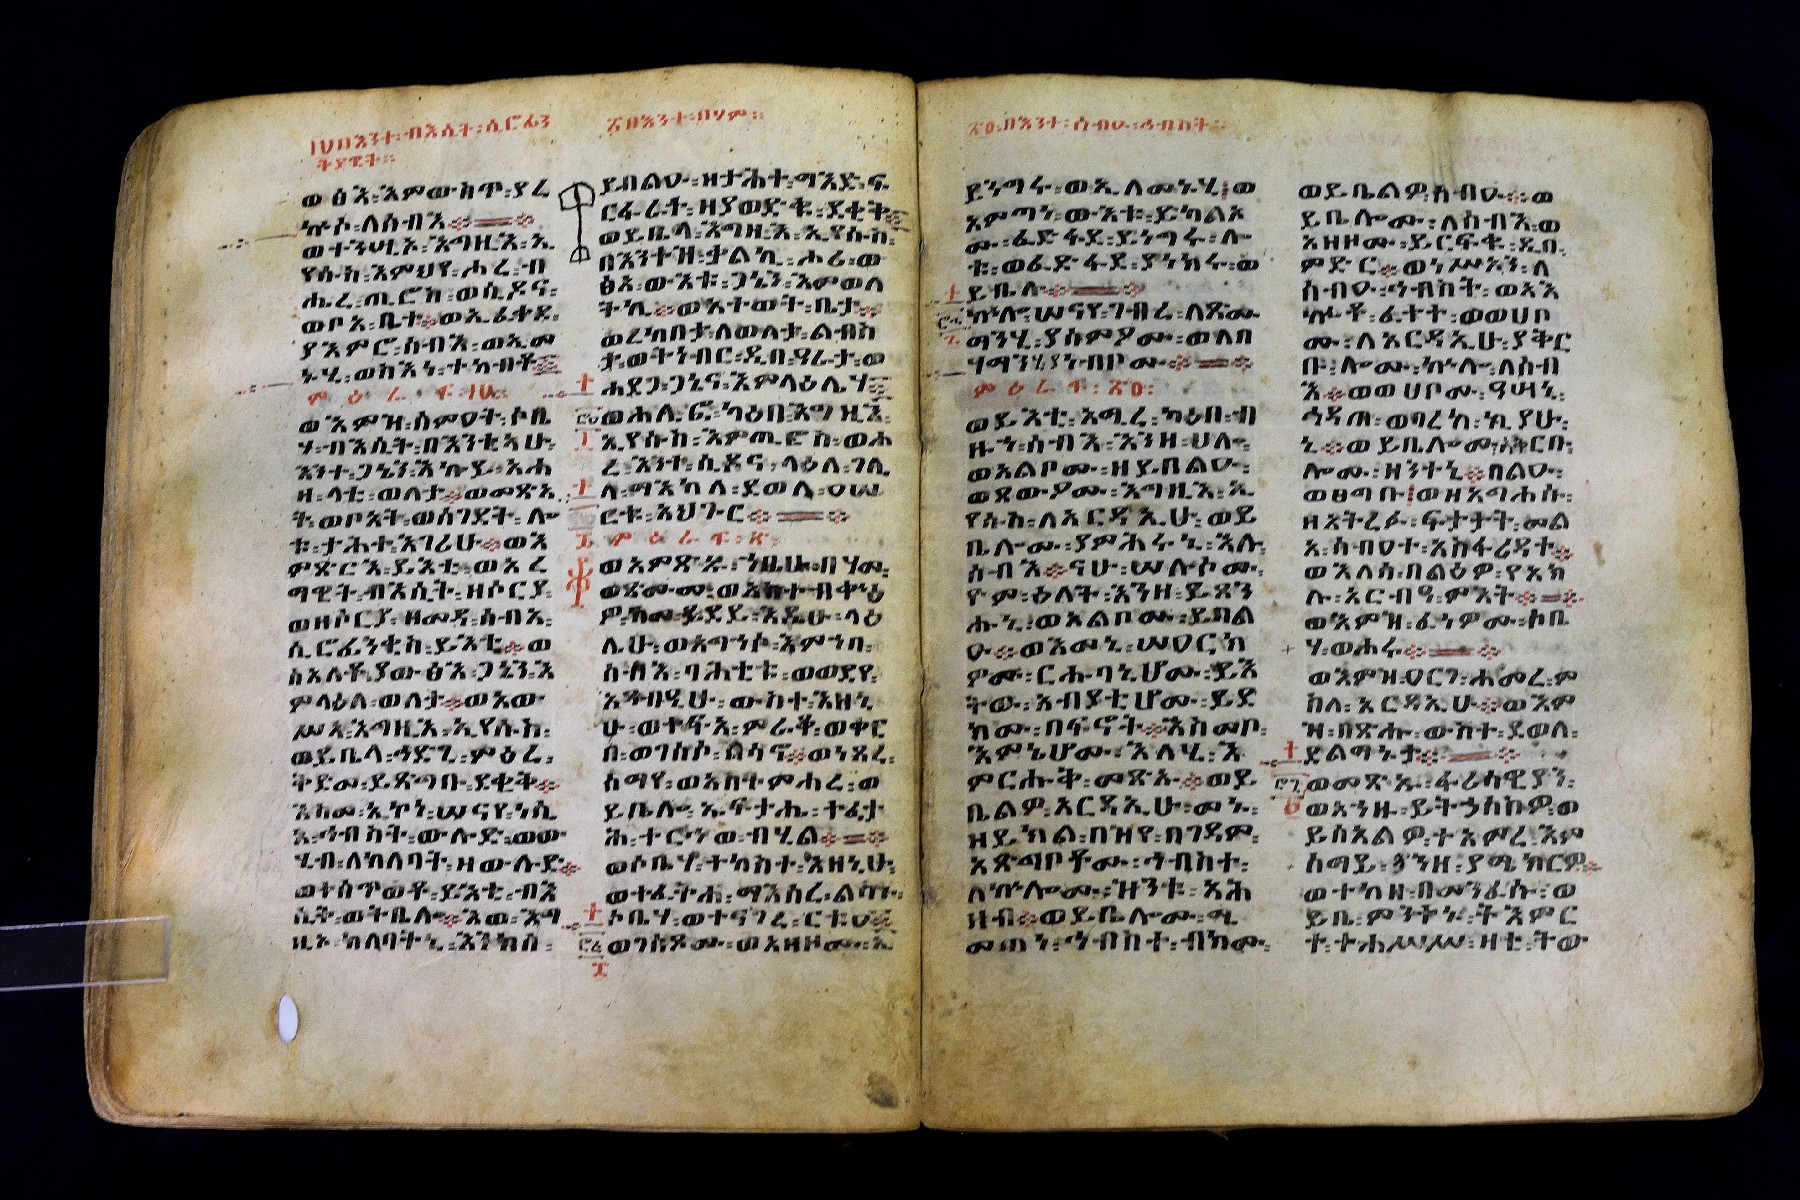 ፲፱በእንተ፡ብእሲት፡ሲሮፊን
ትያዊት።
ወፅአ፡እምውስጥ፡ያረ
ኵሶ፡ለሰብእ።
ወተንሢኦ፡እግዚእ፡ኢ
የሱስ፡እምህየ፡ሖረ፡ብ
ሔረ፡ጢሮስ፡ወሲዶና፡
ወቦአ፡ቤተ።ወኢፈቀደ፡
ያእምሮ፡ሰብእ፡ወኢመ
ኑሂ፡ወስእነ፡ተኀብቶ።
ምዕራፍ፡፲፱።
ወእምዝ፡ሰምዐት፡ሶቤ
ሃ፡ብእሲት፡በእንቲኣሁ፡
እንተ፡ጋኔን፡እኩይ፡አሐ
ዘ፡ላቲ፡ወለታ።ወመጽአ
ት፡ወቦአት፡ወሰገደት፡ሎ
ቱ፡ታሕተ፡እገሪሁ።ወእ
ምጽርእ፡ይእቲ፡ወአረ
ማዊት፡ብእሲት፡ዘሶርያ፡
ወዘሶርያ፡ዘመዳ፡ሰብአ፡
ሲሮፊንቂስ፡ይእቲ።ወ
ስአለቶ፡ያውፅእ፡ጋኔን፡እ
ምላዕለ፡ወለታ።ወአው
ሥአ፡እግዚእ፡ኢየሱስ፡
ወይቤላ፡ኅድጊ፡ምዕረ፡
ትደመ፡ይጽግቡ፡ደቂቅ።
እስመ፡ኢኮነ፡ሠናየ፡ነሢ
አ፡ኅብስት፡ውሉድ፡ወው
ሂብ፡ለከለባት፡ዘውሉድ።
ወተሰጥወቶ፡ይእቲ፡ብእ
ሲት፡ወትቤሎ።እወ፡እግ
ዚኦ፡ከለባትኒ፡እንከሰ፡
፳በእንተ፡በሃም።
ይበልዑ፡ዘታሕተ፡ማእድ፡ፍ
ርፋራት፡ዘያወድቁ፡ደቂቅ።
ወይቤላ፡እግዚእ፡ኢየሱስ፡
በእንተዝ፡ቃልኪ፡ሑሪ፡ወ
ፅአ፡ውእቱ፡ጋኔን፡እምወለ
ትኪ።ወአተወት፡ቤታ።
ወረከበታ፡ለወለታ፡ልብስ
ታ፡ወትነብር፡ዲበ፡ዓራታ፡ወ
ሐደጋ፡ጋኔና፡እምላዕሌሃ።
ወሐለፎ፡ካዕበ፡እግዚእ፡
ኢየሱስ፡እምጢሮስ፡ወሖ
ረ፡እንተ፡ሲዶና፡ላዕለ፡ገሊ
ላ፡ማእከለ፡ደወለ፡ዐሠ
ርቱ፡አህጉር።
ምዕራፍ፡፳።
ወአምጽኡ፡ኀቤሁ፡በሃመ፡
ወጽሙመ፡ወአስተብቍዕ
ዎ፡ከመ፡ይደይ፡እዴሁ፡ላዕ
ሌሁ።ወአግኀሶ፡እምኀበ፡
ሰብእ፡ባሕቲቱ፡ወወደየ፡
አጻብዒሁ፡ውስተ፡እዘኒ
ሁ፡ወተፍአ፡ምራቀ፡ወቀር
በ፡ወገሰሶ፡ልሳኖ።ወነጸረ፡
ሰማየ፡ወአስተምሐረ፡ወ
ይቤሎ፡ኤፍታሕ፡ተፈታ
ሕ፡ተርኅወ፡ብሂል።
ወሶቤሃ፡ተከስተ፡እዘኒሁ፡
ወተፈትሐ፡ማእሰረ፡ልሳኑ፡
ሶቤሃ፡ወተናገረ፡ርቱዐ።
ወገሠጾሙ፡ወአዘዞሙ፡ኢ
፳፩በእንተ፡ሰብዑ፡ኅብስት።
ይንግሩ፡ወኢለመኑሂ፡ወ
አምጣነ፡ውእቱ፡ይከልአ
ሙ፡ፈድፋደ፡ይነግሩ፡ሎ
ቱ፡ወፈድፋደ፡ያነክሩ፡ወ
ይቤሉ።
ኵሎ፡ሠናየ፡ገብረ፡ለጽሙ
ማንሂ፡ያሰምዖሙ፡ወለበ
ሃማንሂ፡ያነብቦሙ።
ምዕራፍ፡፳፩፡
ወይእቲ፡አሚረ፡ካዕበ፡ብ
ዙኅ፡ሰብእ፡እንዘ፡ሀሎ፡
ወአልቦሙ፡ዘይበልዑ፡
ወጸውዖሙ፡እግዚእ፡ኢ
የሱስ፡ለአርዳኢሁ፡ወይ
ቤሎሙ፡ያምሕሩኒ፡እሉ፡
ሰብእ።ናሁ፡ሠሉሶሙ፡
ዮም፡ዕለት፡እንዘ፡ይጸን
ሑኒ፡ወአልቦሙ፡ይብል
ዑ።ወእመኒ፡ሠዐርክ
ምሙ፡ርሑባኒሆሙ፡ይእ
ትው፡አብያቲሆሙ፡ይደ
ክሙ፡በፍኖት።እስመቦ፡
እምኔሆሙ፡እለሂ፡እ
ምርሑቅ፡መጽኡ።ወይ
ቤልዎ፡አርዳኢሁ፡መኑ፡
ዘይክል፡በዝየ፡በገዳም፡
አጽግቦቶሙ፡ኅብስተ፡
ለኵሎሙ፡ዝንቱ፡አሕ
ዛብ።ወይቤሎሙ፡ሚ
መጠን፡ኅብስተ፡ብክሙ፡
ወይቤልዎ፡ሰብዑ።ወ
ይቤሎሙ፡ለሰብእ፡ወ
አዘዞሙ፡ይርፍቁ፡ዲበ፡
ምድር።ወነሥአን፡ለ
ሰብዑ፡ኅብስት፡ወአእ
ኰቶ፡ፈተተ፡ወወሀቦ
ሙ፡ለአርዳኢሁ፡ያቅር
ቡ፡ሎሙ፡ኵሎ፡ለሰብ
እ።ወወሀቦሙ፡ዓሣኒ፡
ኅዳጠ፡ወባረከ፡ኪያሁ፡
ኒ።ወይቤሎሙ፡አቅርቡ፡
ሎሙ፡ዘንተኒ።በልዑ፡
ወፀግቡ፡ወዘአግሐሱ፡
ዘአትረፉ፡ፍታታት፡መል
አ፡ሰብዐተ፡አስፋሪዳተ።
ወእለሰ፡በልዕዎ፡የአክ
ሉ፡አርብዓ፡ምእት።
ወእምዝ፡ፈነዎሙ፡ሶቤ
ሃ፡ወሖሩ።
ወእምዝ፡ዐርገ፡ሐመረ፡ም
ስለ፡አርዳኢሁ።ወእም
ዝ፡በጽሑ፡ውስተ፡ደወለ፡
ደልማኑታ።
ወመጽኡ፡ፋሪሳዊያን፡
ወአንዙ፡ይትኃሰስዎ፡ወ
ይስእልዎ፡ተአምረ፡እም
ሰማይ፡እንዘ፡ያሜክርዎ።
ወተከዘ፡በመንፈሱ፡ወ
ይቤ፡ምንትኑ፡ትእምር
ተ፡ተሐሥሥ፡ዛቲ፡ትው